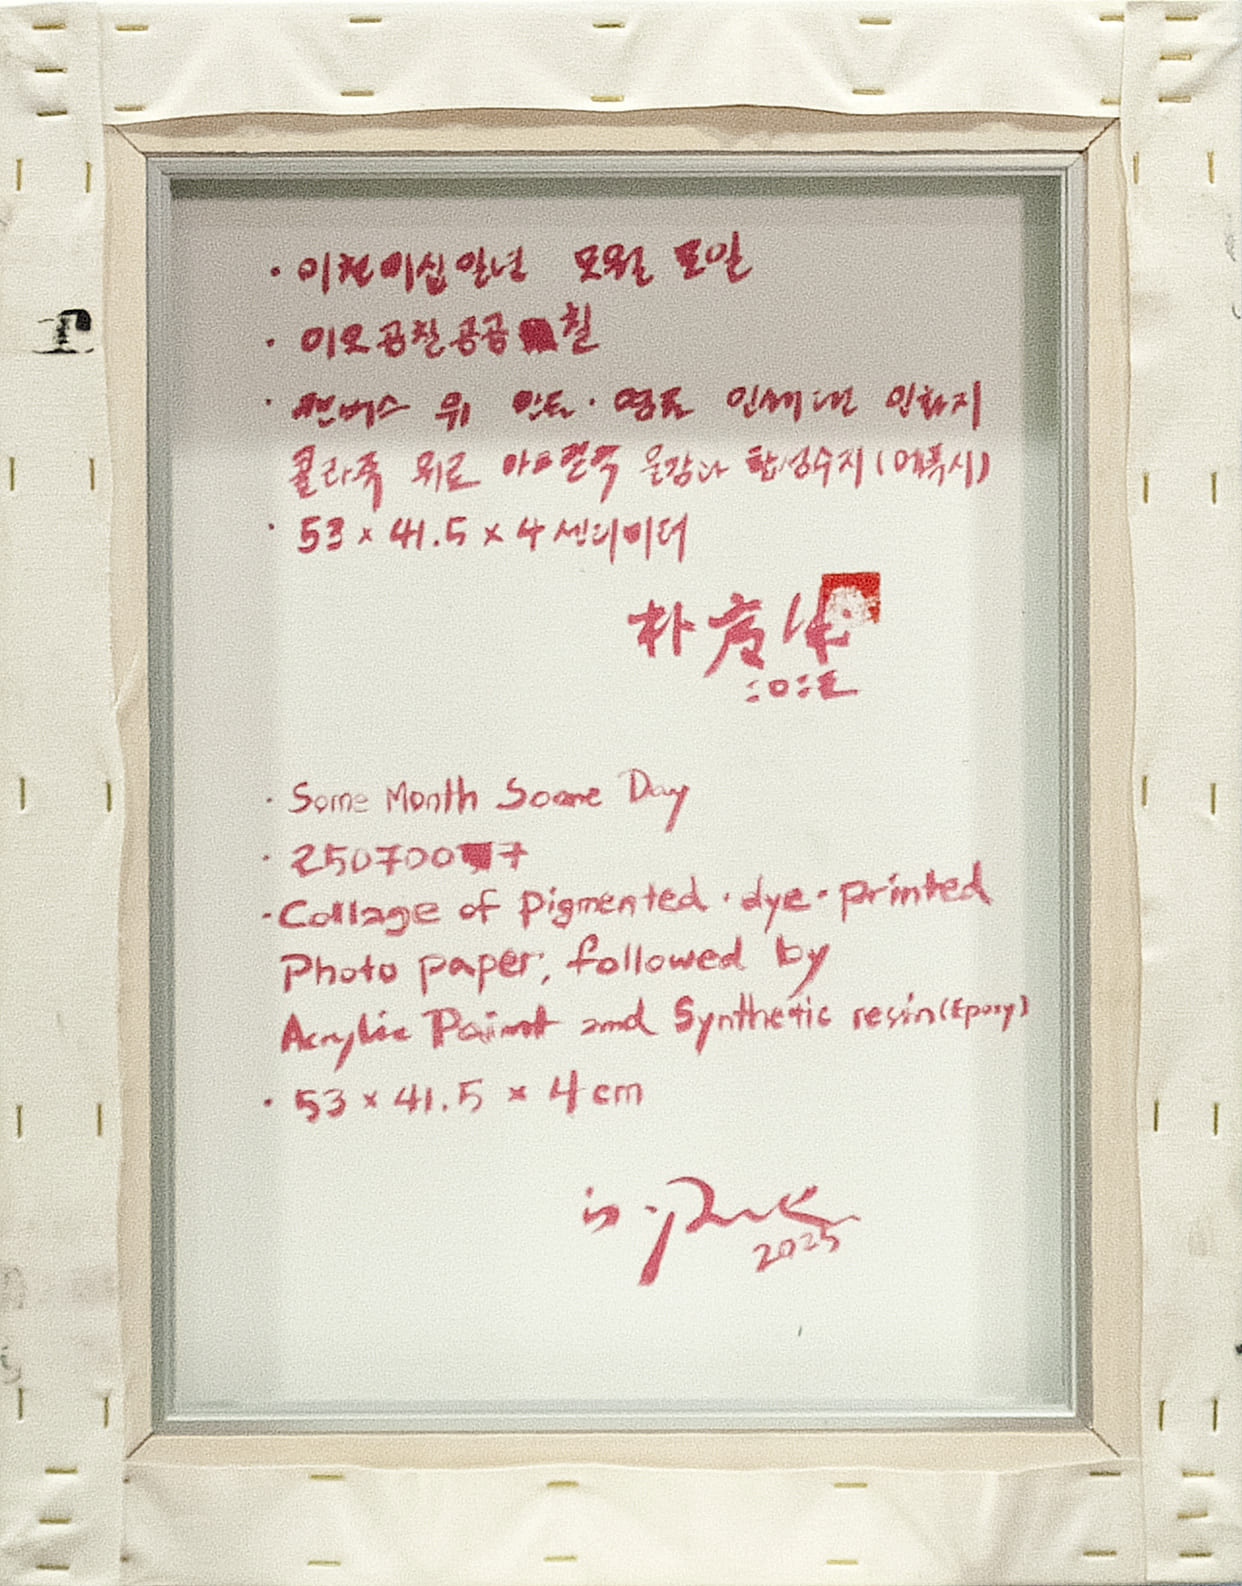 · 이천이십일년 모월 모일
· 이오공칠공공 칠
· 캔버스 위 안료·염료 인쇄된 인화지
콜라주 뒤로 아크릴릭 물감과 합성수지(에폭시)
· 53 × 41.5 × 4 센티미터
朴
二〇二五
· Some Month Some Day
· 250700 7
· Collage of Pigmented · dye · printed
Photo paper, followed by
Acrylic Paint and Synthetic resin (Epoxy)
· 53 × 41.5 × 4 cm
is. Park
2025